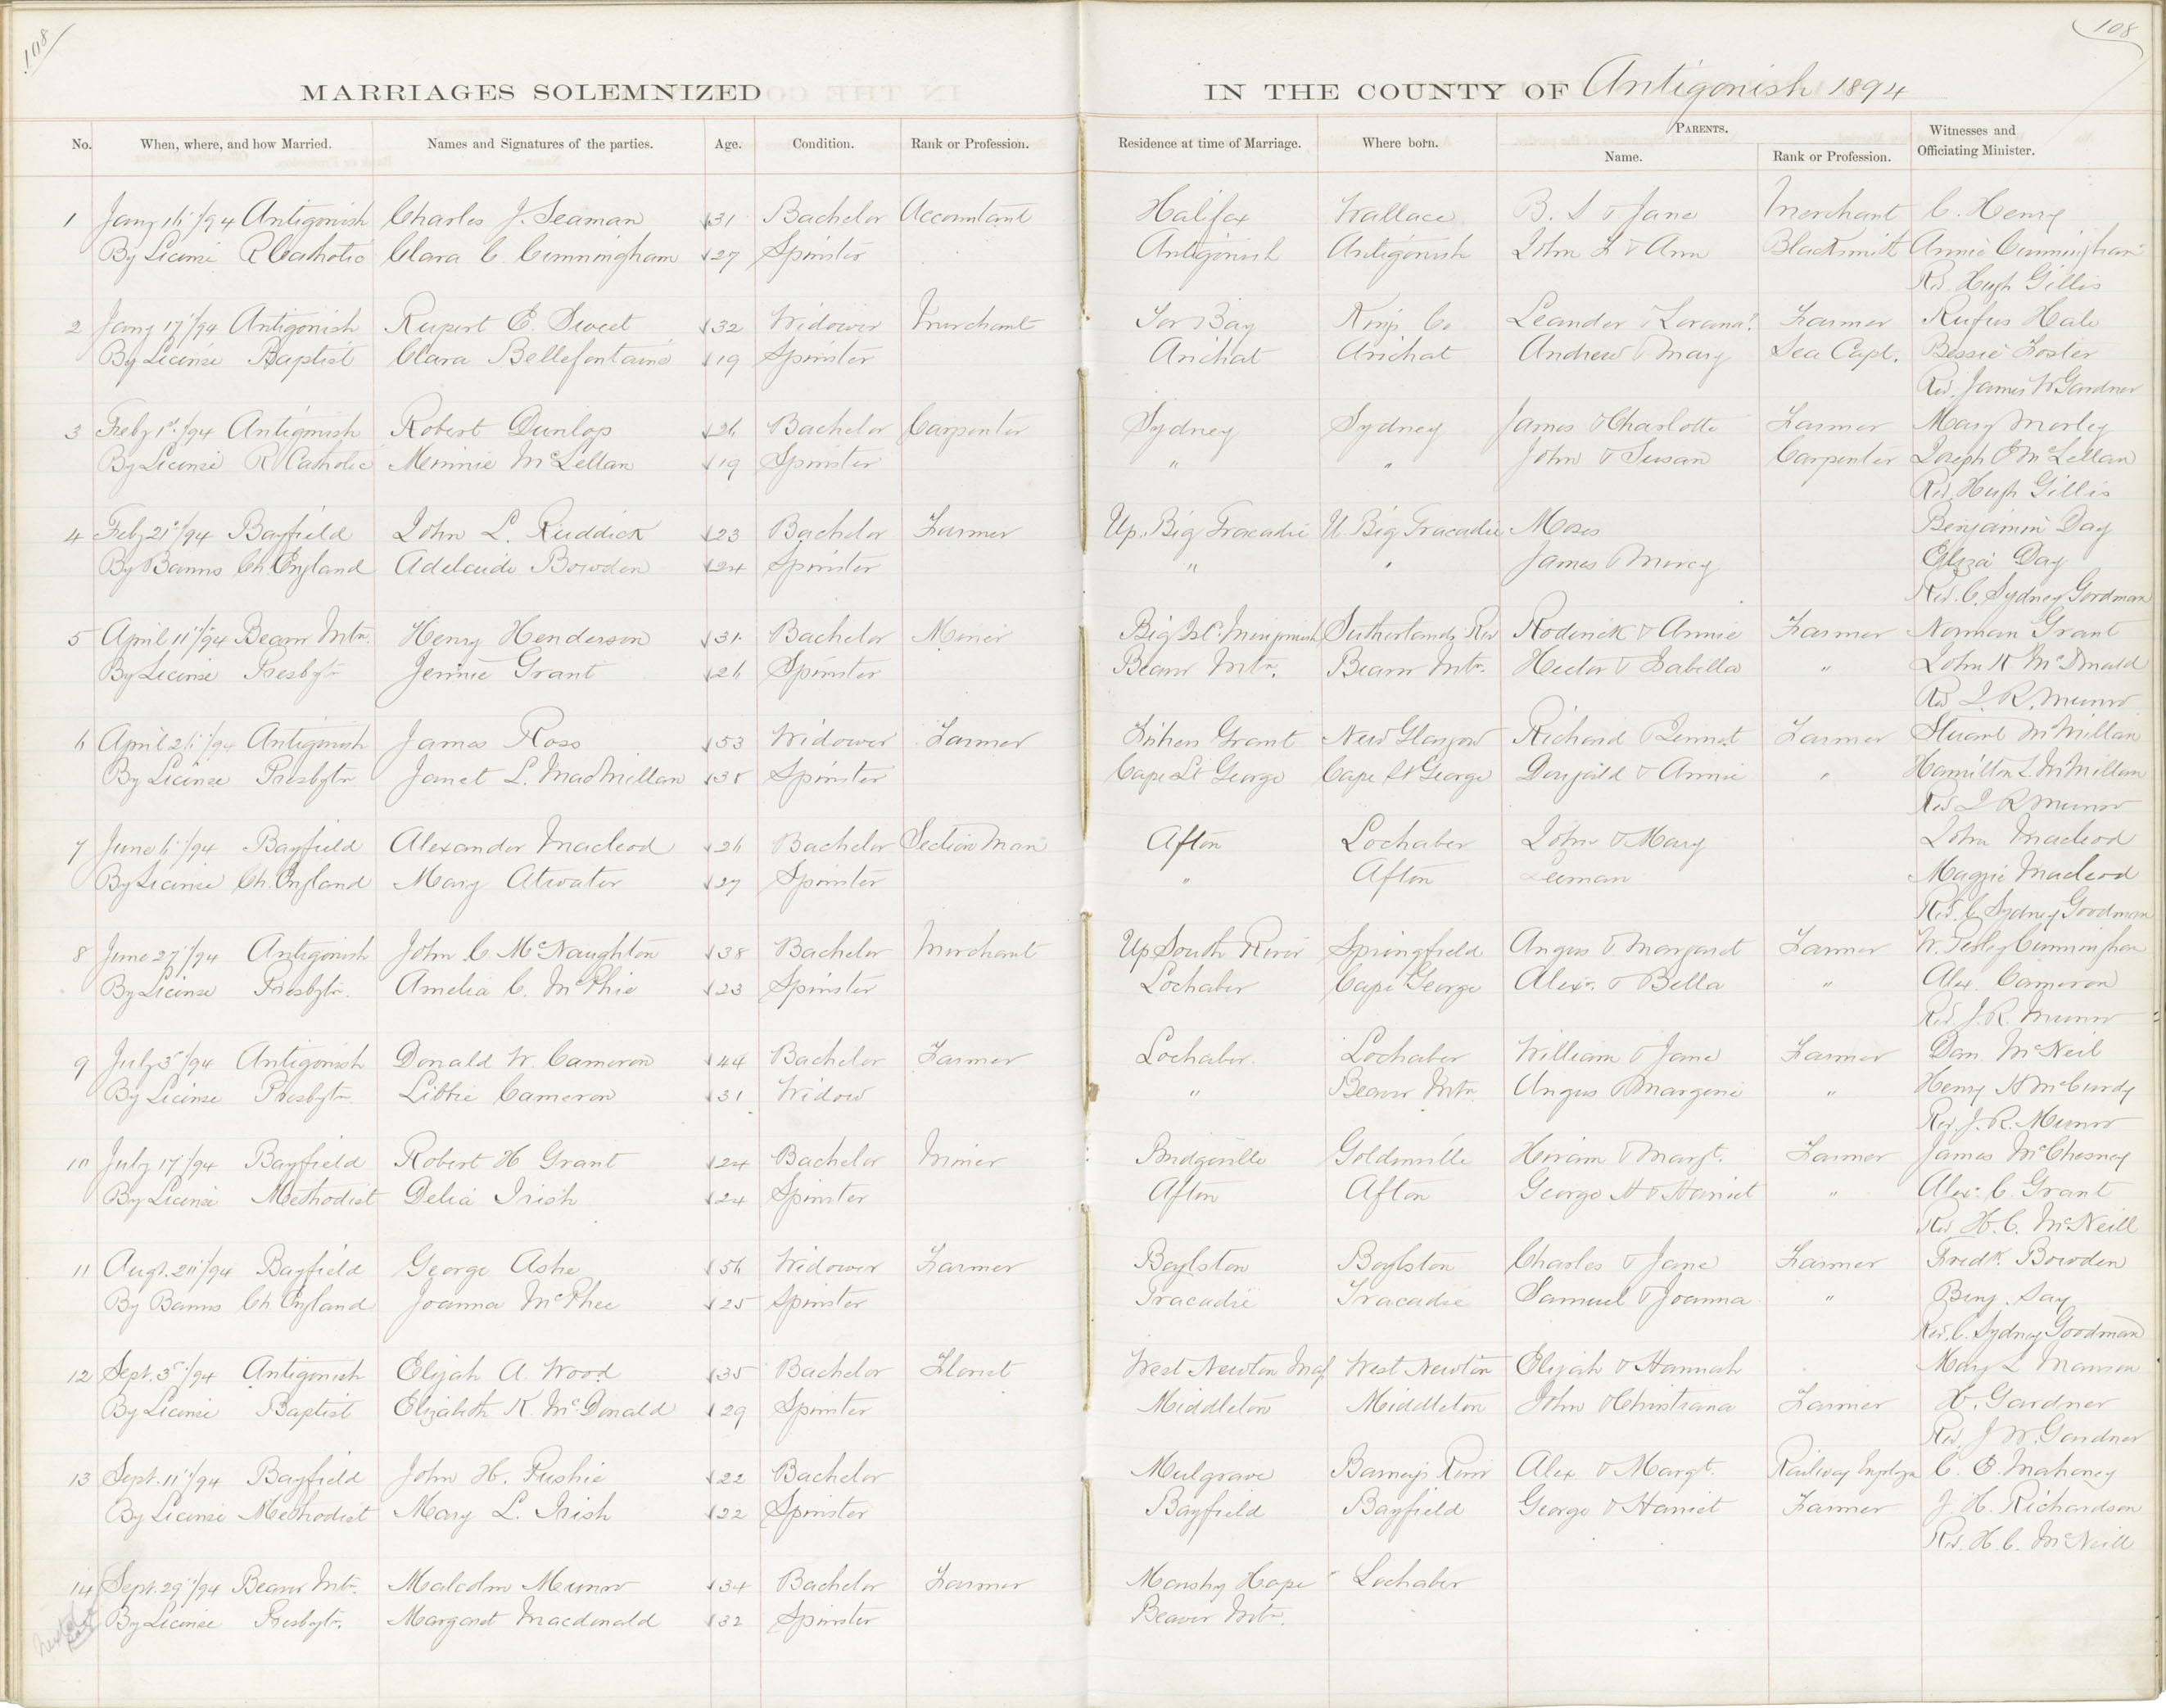 108
108
MARRIAGES SOLEMNIZED IN THE COUNTY OF Antigonish 1894
No. When, where, and how Married. Names and Signatures of the parties. Age. Condition. Rank or Profession. Residence at time of Marriage. Where born. PARENTS. Name. Rank or Profession. Witnesses and Officiating Minister.
1 Jany 16/94 Antigonish Charles J. Seaman 31 Bachelor Accountant Halifax Wallace B. S & Jane Merchant C. Henry
By License R Catholic Clara C. Cunningham 27 Spinster Antigonish Antigonish John & Ann Blacksmith Annie Cunningham
Rev. Hugh Gillis
2 Jany 17/94 Antigonish Rupert E. Sweet 32 Widower Merchant Tor Bay Kings Co Leander & Lorana? Farmer Rufus Hale
By License Baptist Clara Bellefontaine 19 Spinster Arichat Arichat Andrew & Mary Sea Capt. Bessie Foster
Rev. James W. Gardner
3 Feby 1st/94 Antigonish Robert Dunlop 26 Bachelor Carpenter Sydney Sydney James & Charlotte Farmer Mary Morley
By License R Catholic Minnie McLellan 19 Spinster " " John & Susan Carpenter Joseph McLellan
Rev. Hugh Gillis
4 Feby 21/94 Bayfield John L. Ruddick 23 Bachelor Farmer Up. Big Tracadie U. Big Tracadie Moses Benjamin Day
By Banns Ch. England Adelaide Bowden 24 Spinster " " James & Mercy Eliza Day
Rev. C. Sydney Goodman
5 April 11/94 Beaver Mtn. Henry Henderson 31 Bachelor Miner Big Isd. Merigomish Sutherlands Riv Roderick & Annie Farmer Norman Grant
By License Presbytn Jennie Grant 26 Spinster Beaver Mtn. Beaver Mtn. Hector & Isabella " John K McDonald
Rev J. R. Munro
6 April 26/94 Antigonish James Ross 53 Widower Farmer Fishers Grant New Glasgow Richard & Farmer Stuart McMillan
By License Presbytn Janet L. MacMillan 38 Spinster Cape St George Cape St George Dougald & Annie " Hamilton L. McMillan
Rev J R Munro
7 June 6/94 Bayfield Alexander Macleod 26 Bachelor Section Man Afton Lochaber John & Mary John Macleod
By License Ch. England Mary Atwater 27 Spinster " Afton Leeman Maggie Macleod
Rev. C Sydney Goodman
8 June 27/94 Antigonish John C McNaughton 38 Bachelor Merchant Up South River Springfield Angus & Margaret Farmer W. Cunningham
By License Presbytn. Amelia C. McPhie 23 Spinster Lochaber Cape George Alexr. & Bella " Alex. Cameron
Rev J. R. Munro
9 July 3/94 Antigonish Donald W. Cameron 44 Bachelor Farmer Lochaber. Lochaber William & Jane Farmer Dan McNeil
By License Presbytn. Libbie Cameron 31 Widow " Beaver Mtn Angus & Margerie " Henry H McCurdy
Rev. J. R. Munro
10 July 17/94 Bayfield Robert H Grant 24 Bachelor Miner Bridgeville Goldenville Hiram & Margt. Farmer James McChesney
By License Methodist Delia Irish 24 Spinster Afton Afton George H & Harriet " Alex. C. Grant
Rev H. C. McNeill
11 Augt. 20/94 Bayfield George Ashe 56 Widower Farmer Boylston Boylston Charles & Jane Farmer Fredk. Bowden
By Banns Ch England Joanna McPhee 25 Spinster Tracadie Tracadie Samuel & Joanna " Benj. Day
Rev. C. Sydney Goodman
12 Sept. 3/94 Antigonish Elijah A. Wood 35 Bachelor Florist West Newton Mass West Newton Elijah & Hannah Mary L Manson
By License Baptist Elizabeth K. McDonald 29 Spinster Middleton Middleton John & Christiana Farmer H. Gardner
Rev. J. W. Gardner
13 Sept. 11/94 Bayfield John H. Rushie 22 Bachelor Mulgrave Barney's River Alex & Margt. Railway Employe C. O. Mahoney
By License Methodist Mary L. Irish 22 Spinster Bayfield Bayfield George & Harriet Farmer J. H. Richardson
Rev. H. C. McNeill
14 Sept. 29/94 Beaver Mtn. Malcolm Munro 34 Bachelor Farmer Marshy Hope Lochaber
By License Presbytn. Margaret Macdonald 32 Spinster Beaver Mtn.